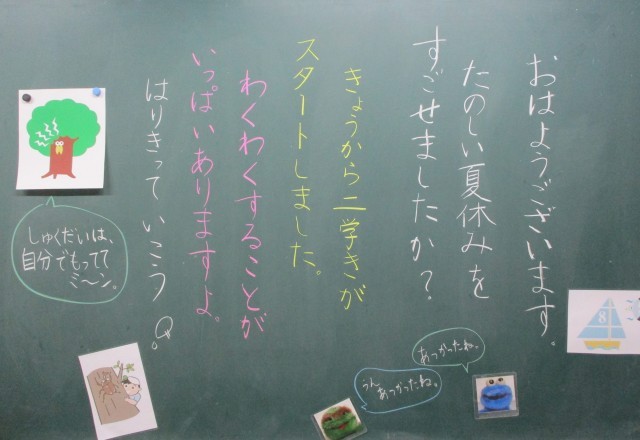 おはようございます。
たのしい夏休みを
すごせましたか？
きょうから二学きが
スタートしました。
わくわくすることが
いっぱいありますよ。
はりきっていこう。
あつかったね。
うん
あつかったね。
しゅくだいは、
自分でもってて
ミ〜ン。
8